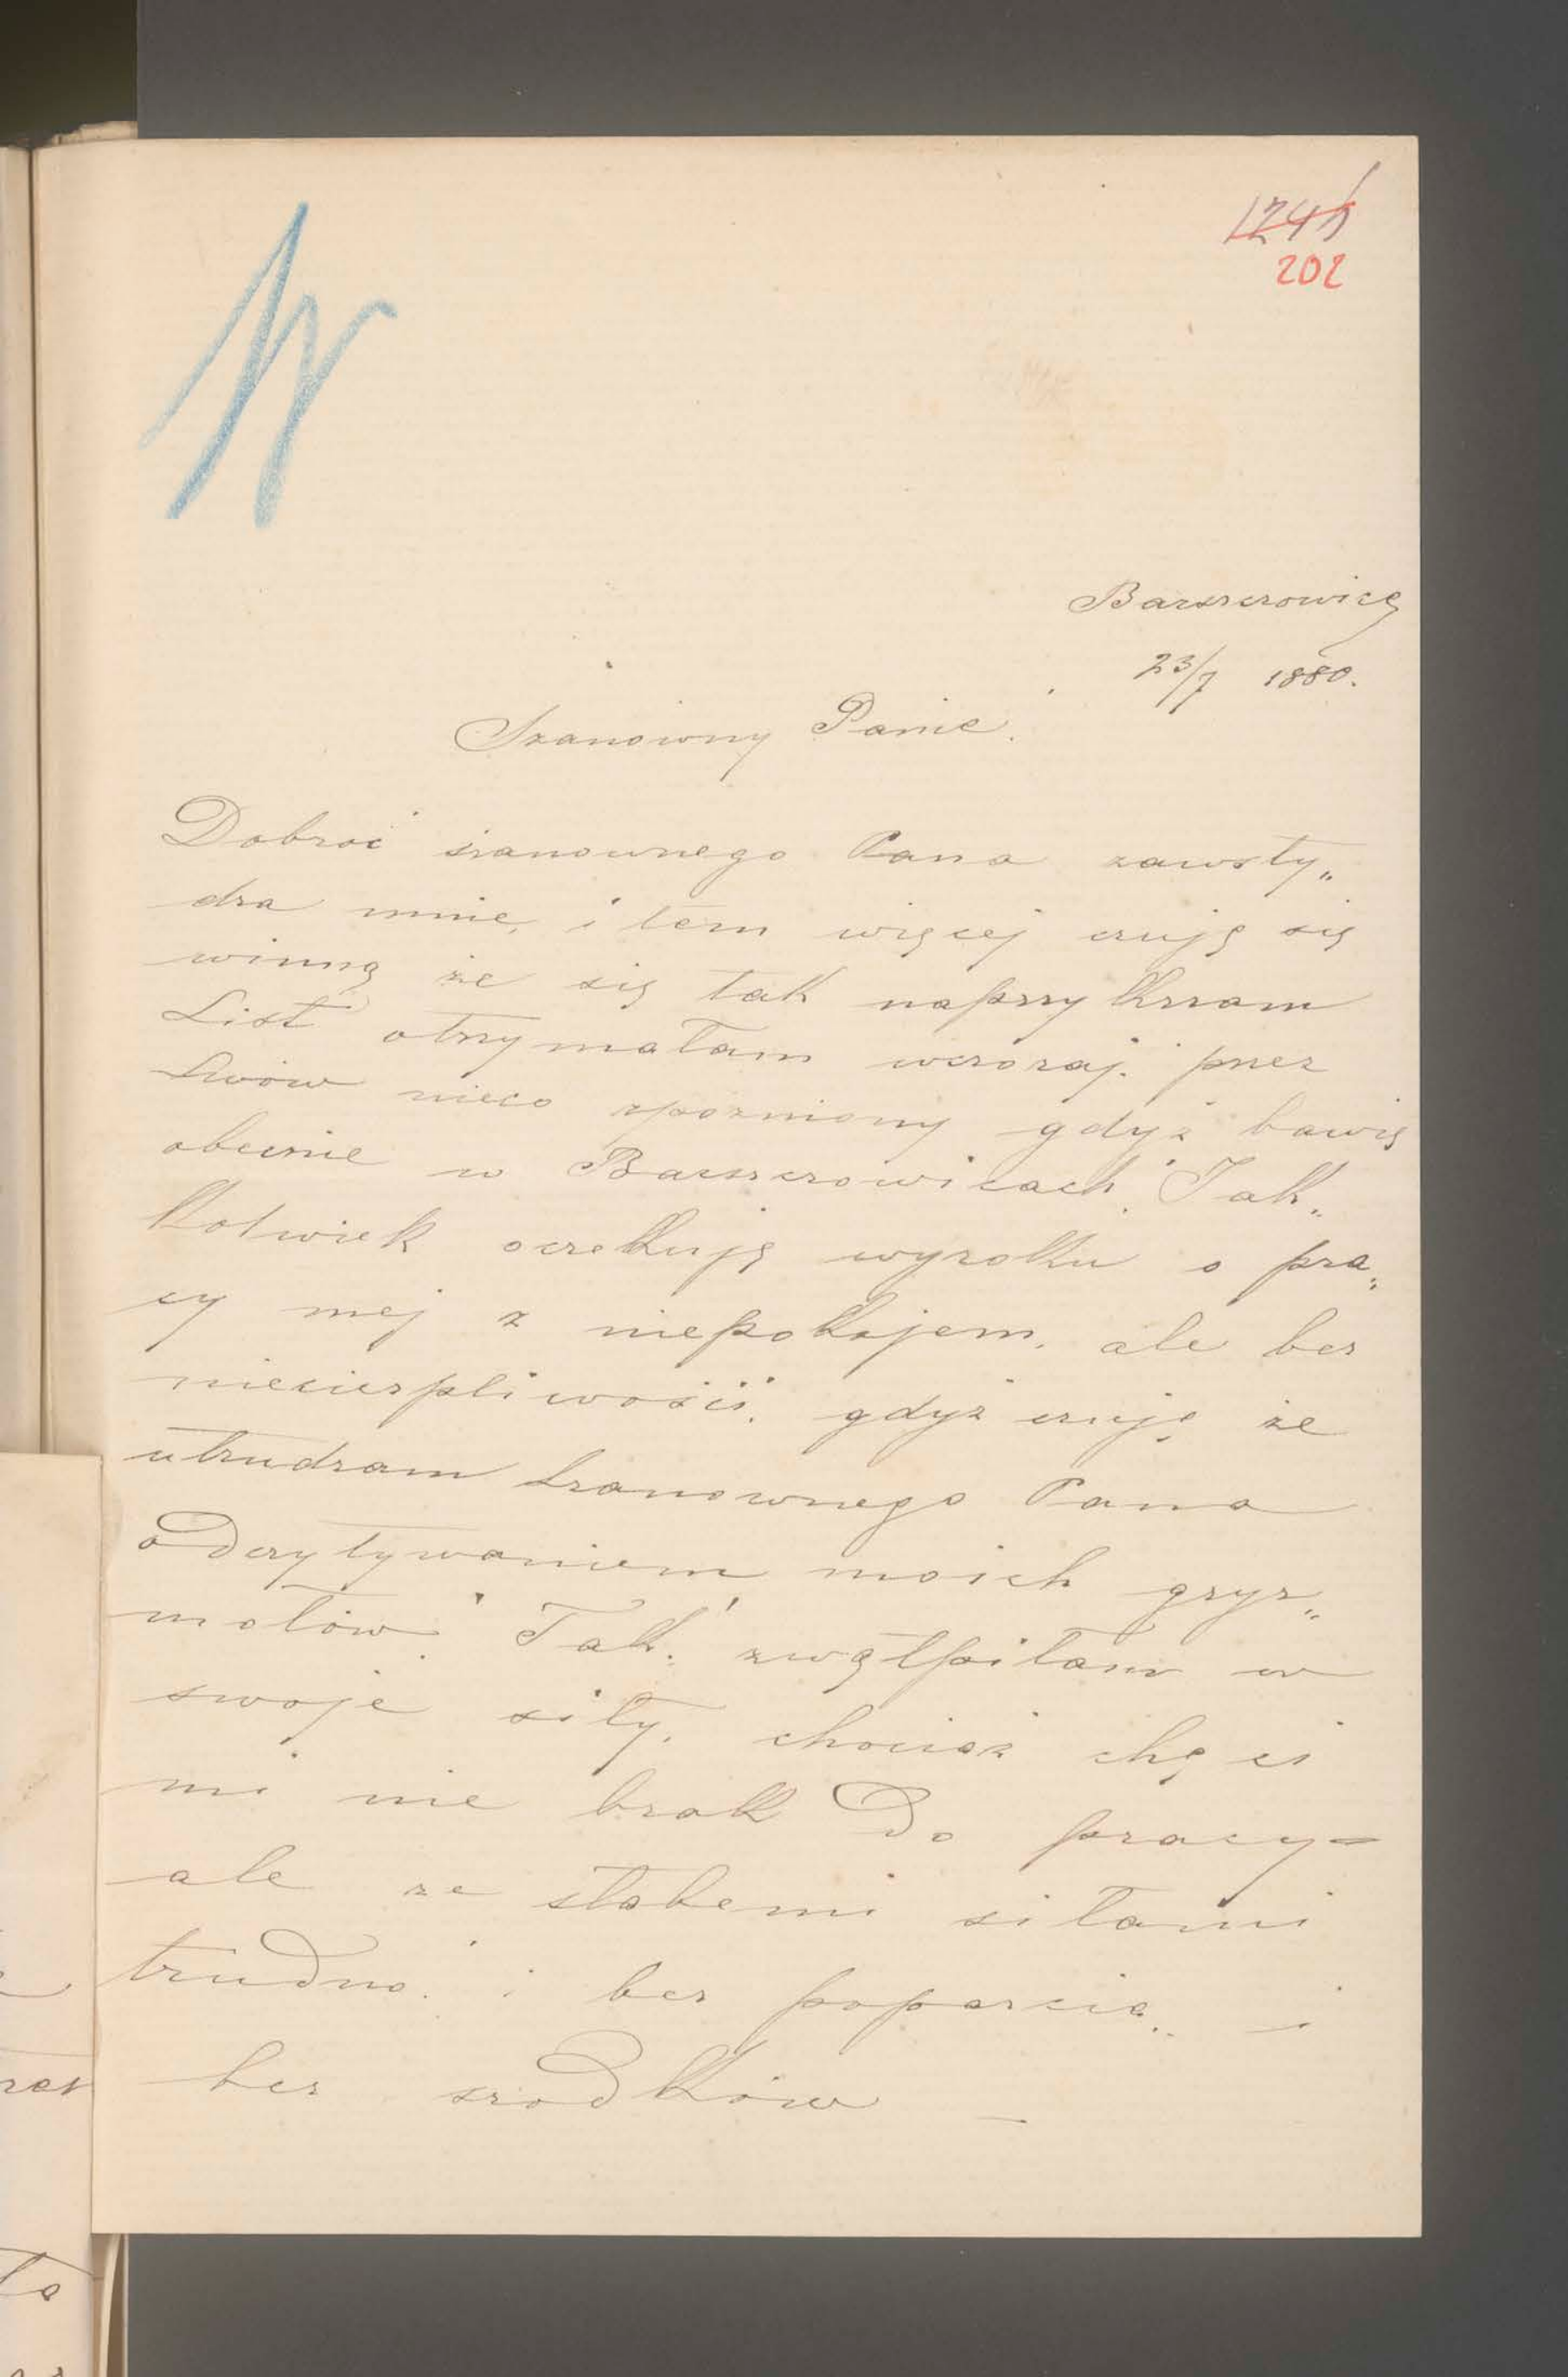 202
Barszczowice
23/7 1880.
Szanowny Panie.
Dobroć szanownego Pana zawsty„
dza mnie, i tem więcej czuję się
winną że się tak naprzykrzam
List otrzymałam wczoraj. przez
Lwów nieco zpozniony gdyż bawię
obecnie w Barszczowicach. Jak„
kolwiek oczekuję wyroku o pra„
cy mej z niepokojem, ale bez
niecierpliwości, gdyż czuję że
utrudzam Szanownego Pana
odczytywaniem moich gryz„
mołów. Tak! zwątpiłam w
swoje siły, chociaż chęci
mi nie brak Do pracy –
ale ze słabemi siłami
truDno. i bez poparcia.. i
bez srodków –